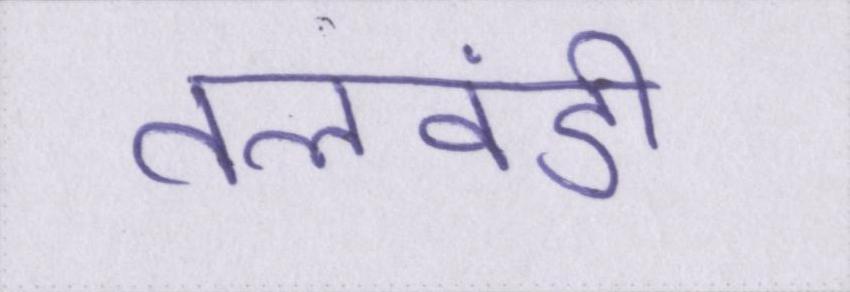 तलवंडी